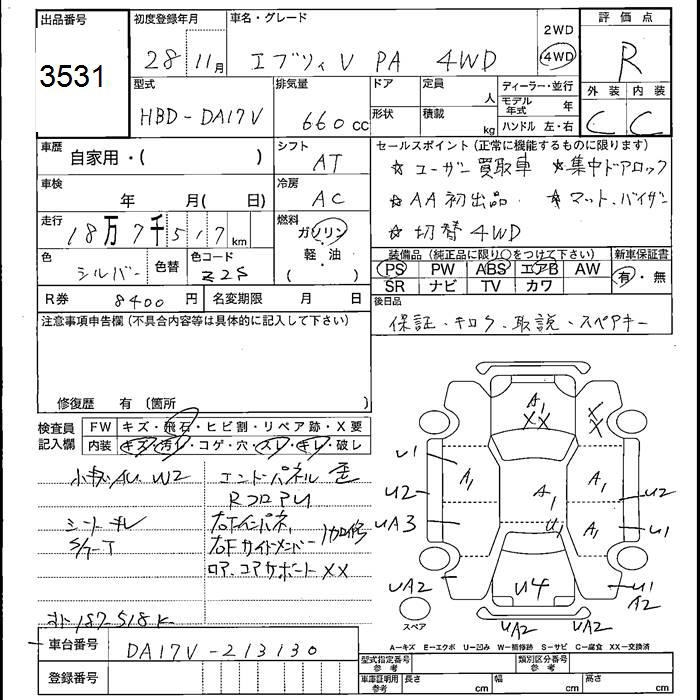 出品番号
3531
初度登録年月
28 11月
車名・グレード
エブリィV PA 4WD
2WD
4WD
評価点
R
型式
HBD-DA17V
排気量
660cc
ドア
形状
定員
人
積載
kg
ディーラー・並行
モデル年式 年
ハンドル 左・右
外装 内装
C C
車歴
自家用・( )
シフト
AT
セールスポイント(正常に機能するものに限ります)
☆ ユーザー買取車 ☆集中ドアロック
☆AA初出品 ☆マット、バイザー
☆切替4WD
車検
年 月( 日)
冷房
AC
走行
18万7千517km
燃料
ガソリン・
軽・油
( )
色
シルバー
色替
色コード
Z2S
装備品(純正品に限り○をつけて下さい)
PS PW ABS エアB AW
SR ナビ TV カワ
新車保証書
有・無
R券 8400円
名変期限 月 日
後日品
保証、キロク、取説、スペアキー
注意事項申告欄(不具合内容等は具体的に記入して下さい)
修復歴 有(箇所 )
検査員記入欄
FW キズ・飛石・ヒビ割・リペア跡・X要
内装 キズ・汚れ・コゲ・穴・スレ・キレ・破レ
小キズAU W2
エンドパネル 歪
RコアアU
シートキレ
右Fインパネ
右Fサイドメンバー
加修
コア、コアサポートXX
187518K
車台番号
DA17V-213130
登録番号
A1
XX
XX
U1
A1
U2
UA3
A1
U1
A1
U2
A1
U1
UA2
U4
U1
A2
UA2
UA2
スペア
A-キズ E-エクボ U-凹み W-補修跡 S-サビ C-腐食 XX-交換済
型式指定番号
参考
類別区分番号
参考
車庫証明用
参考
長さ cm
幅 cm
高さ cm